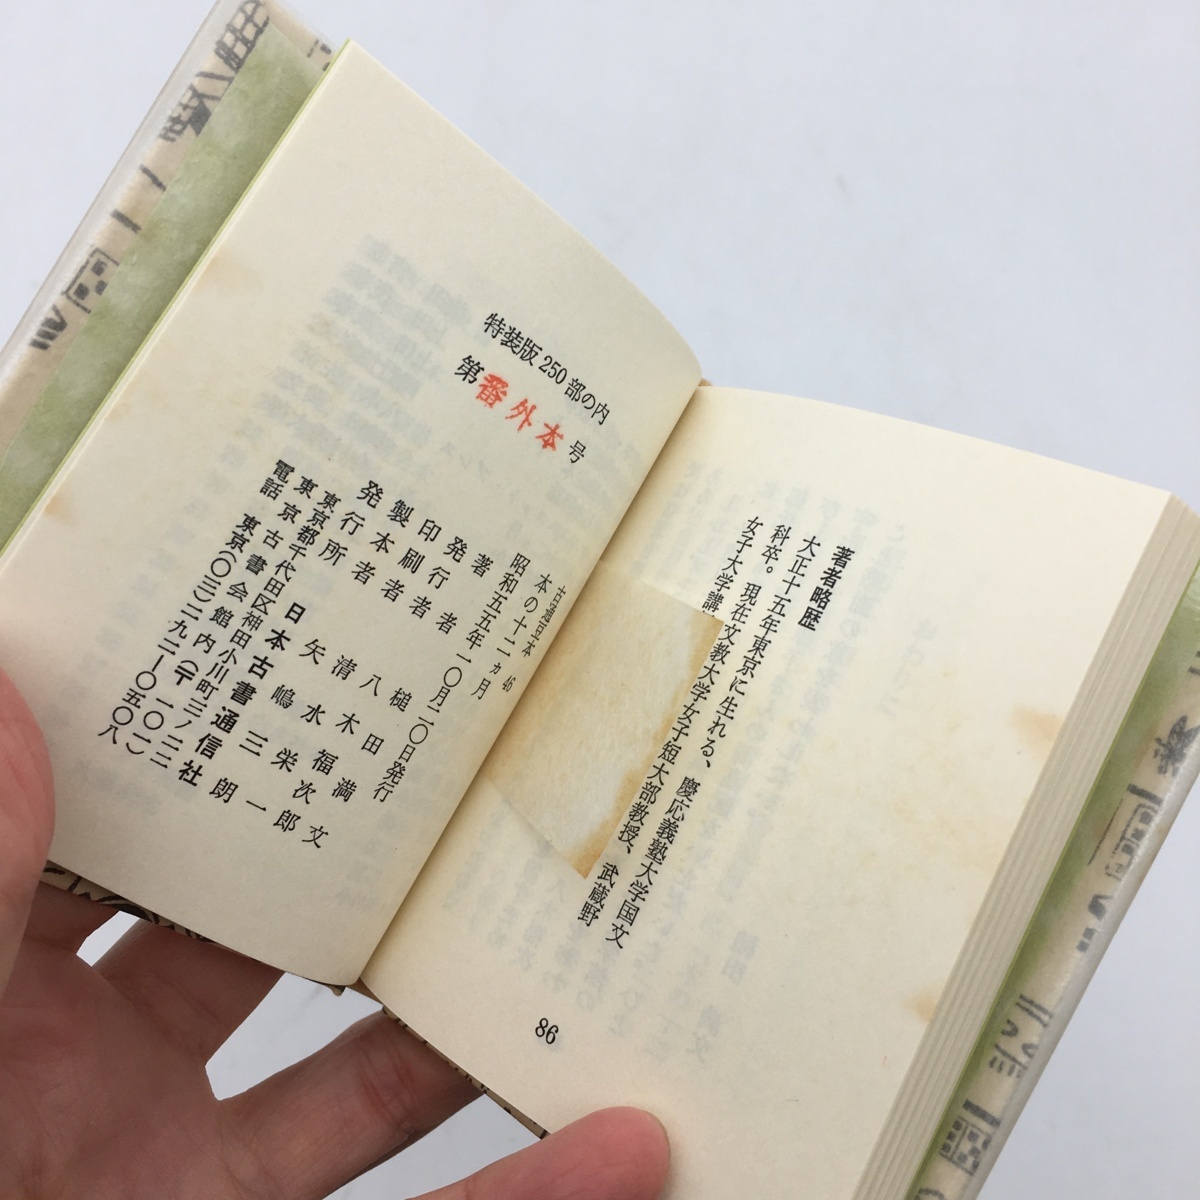 著者略歴
大正十五年東京に生れる、慶応義塾大学国文
科卒。現在文教大学女子短大部教授、武蔵野
女子大学講
86
特装版250部の内
第番外本号
古通豆本 46
本の十二ヵ月
昭和五五年一〇月二〇日発行
著者 槌田満文
発行者 八木福次郎
印刷者 清水栄一
製本者 矢嶋三朗
発行所 日本古書通信社
東京都千代田区神田小川町三ノ二二
東京古書会館内(〒一〇一)
電話 東京(〇三)二九二―〇五〇八